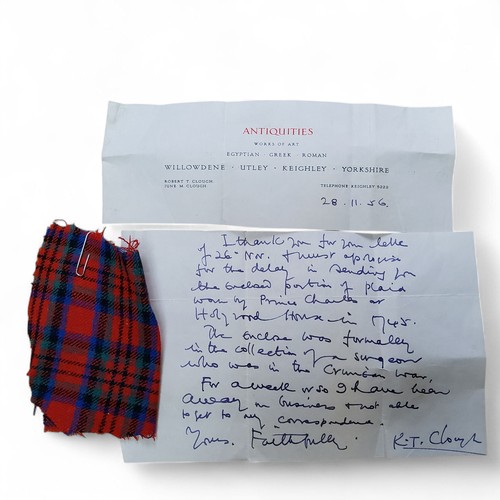 ANTIQUITIES
WORKS OF ART
EGYPTIAN · GREEK · ROMAN
WILLOWDENE · UTLEY · KEIGHLEY · YORKSHIRE
ROBERT T CLOUGH
JUNE M CLOUGH
TELEPHONE KEIGHLEY
28.11.56.
I thank you for your letter
of 26 Nov. I must apologise
for the delay in sending you
the enclosed portion of plaid
worn by Prince Charles at
Holyrood House in 1745.
The enclose was formally
in the collection of a surgeon
who was in the Crimean War.
For a week or so I have been
away on business & not able
to get to my correspondence.
Yours. Faithfully.
R.T. Clough